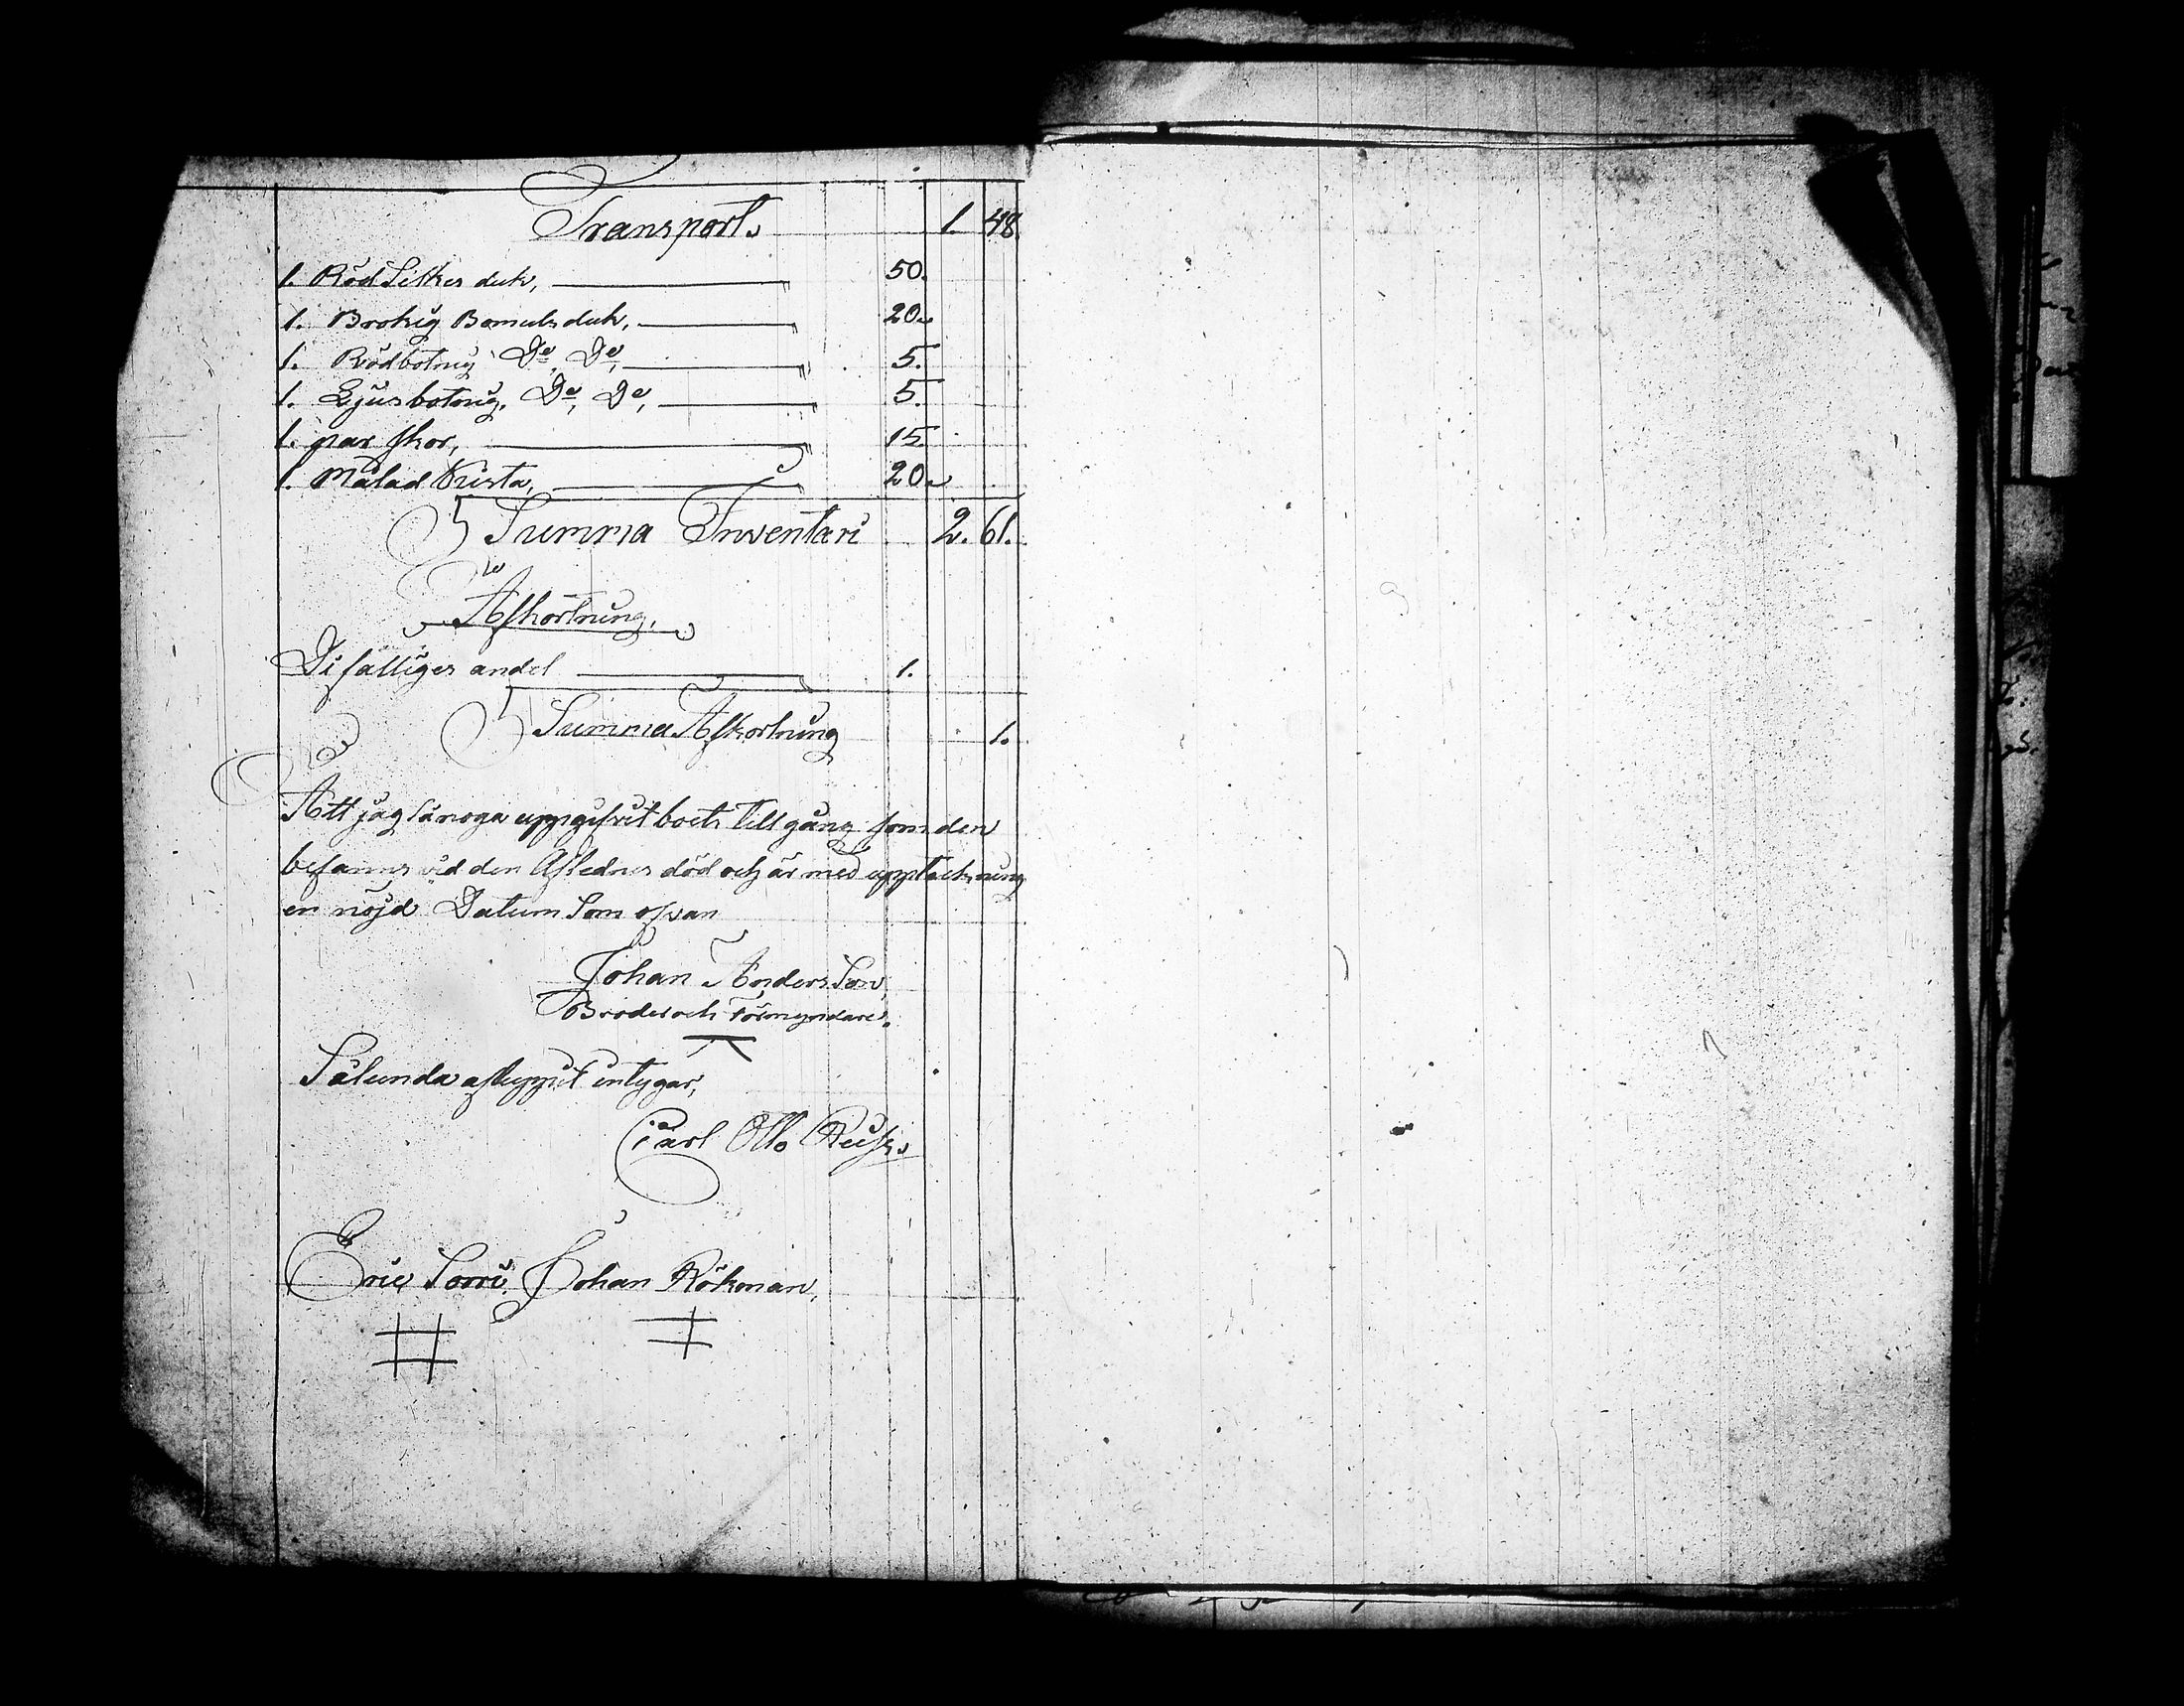 Transport. 1. 48.
1. Röd Silkes duk, 50.
1. Brokig Bomuls duk, 20.
1. Rödbotnig Do, Do, 5.
1. Ljusbotnig. Do, Do, 5.
1. par skor, 15.
1. Målad Kista, 20.
Summa Inventari 2. 61.
Afkortning.
Di fattiges andel 1.
Summa Afkortning 1.
Att jag så noga uppgifvit boets tillgång som den
befanns vid den Aflednes död och är med uppteckning
en nöjd Datum Som ofvan
Johan Anders Son,
Broder och Förmyndare.
Sålunda aflupit intygar,
Carl Otto
Eric Sorri, Johan Rökman,